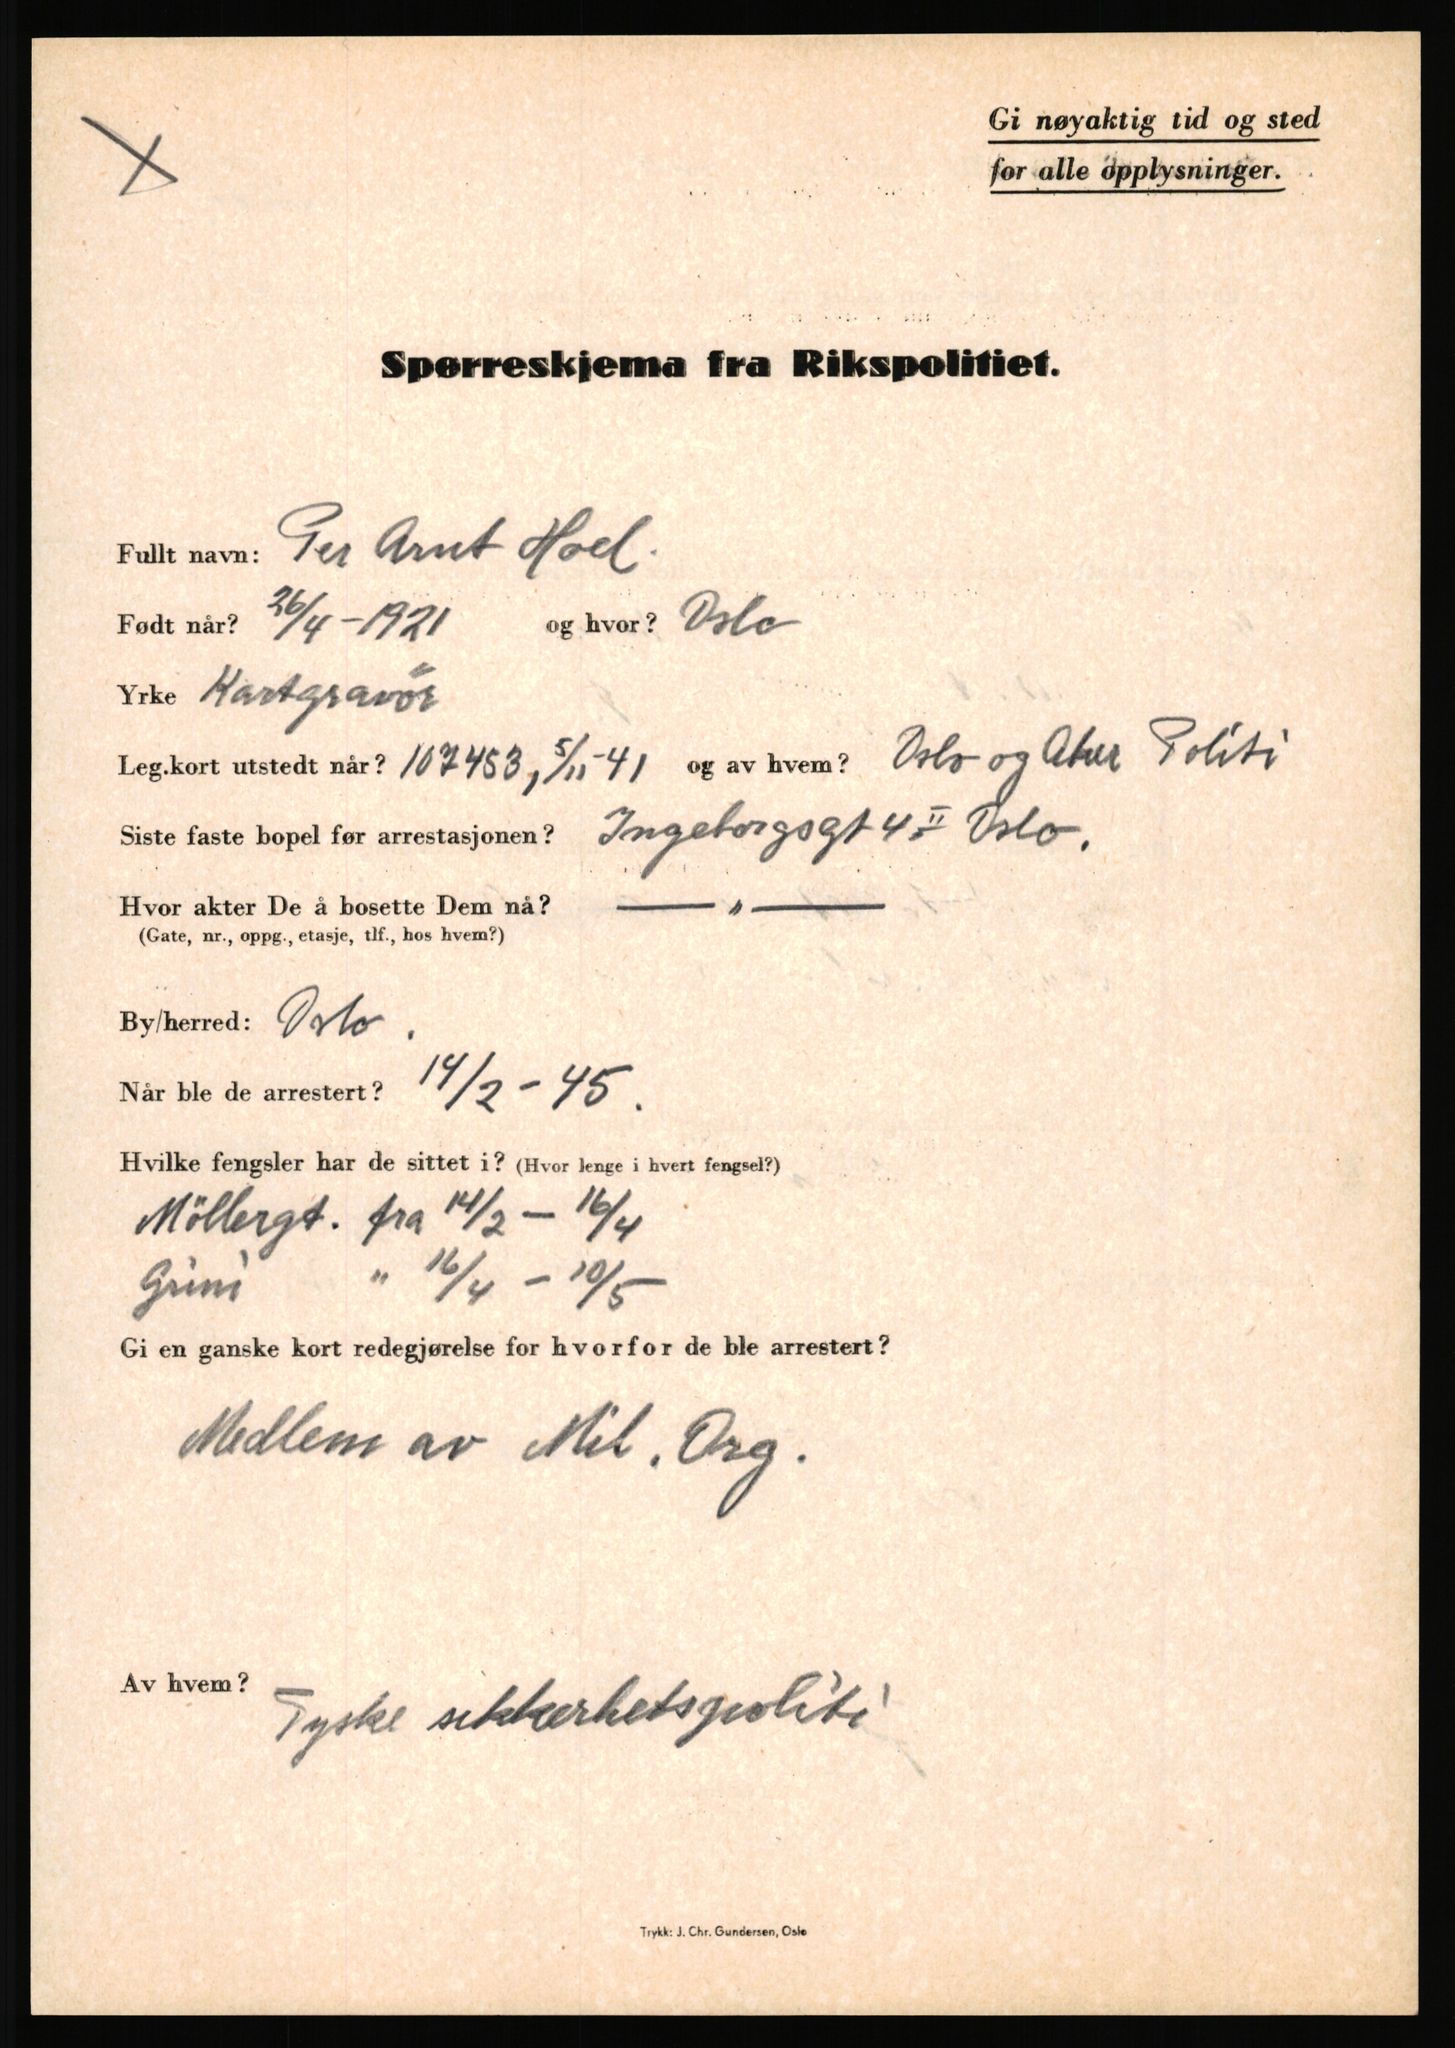 Gi nøyaktig tid og sted
for alle opplysninger.
Spørreskjema fra Rikspolitiet.
Fullt navn: Per Arnt Hoel.
Født når? 26/4-1921 og hvor? Oslo
Yrke Kartgravör
Leg.kort utstedt når? 107453, 5/11-41 og av hvem? Oslo og Aker Politi
Siste faste bopel før arrestasjonen? Ingeborgsgt 4 II Oslo.
Hvor akter De å bosette Dem nå? — " —
(Gate, nr., oppg., etasje, tlf., hos hvem?)
By/herred: Oslo.
Når ble de arrestert? 14/2-45.
Hvilke fengsler har de sittet i? (Hvor lenge i hvert fengsel?)
Möllergt. fra 14/2 — 16/4
Grini " 16/4 - 10/5
Gi en ganske kort redegjørelse for hvorfor de ble arrestert?
Medlem av Mil. Org.
Av hvem? Tyske sikkerhetspoliti
Trykk: J. Chr. Gundersen, Oslo